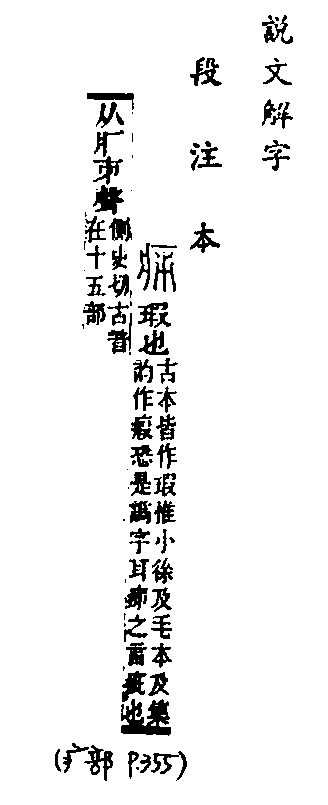 說文解字
段注本
㾊 瑕也
古本皆作瑕惟小徐及毛本及集
韵作瘕恐是譌字耳㾊之言疵也
从疒𠂔聲
側史切古音
在十五部
(疒部 P.355)